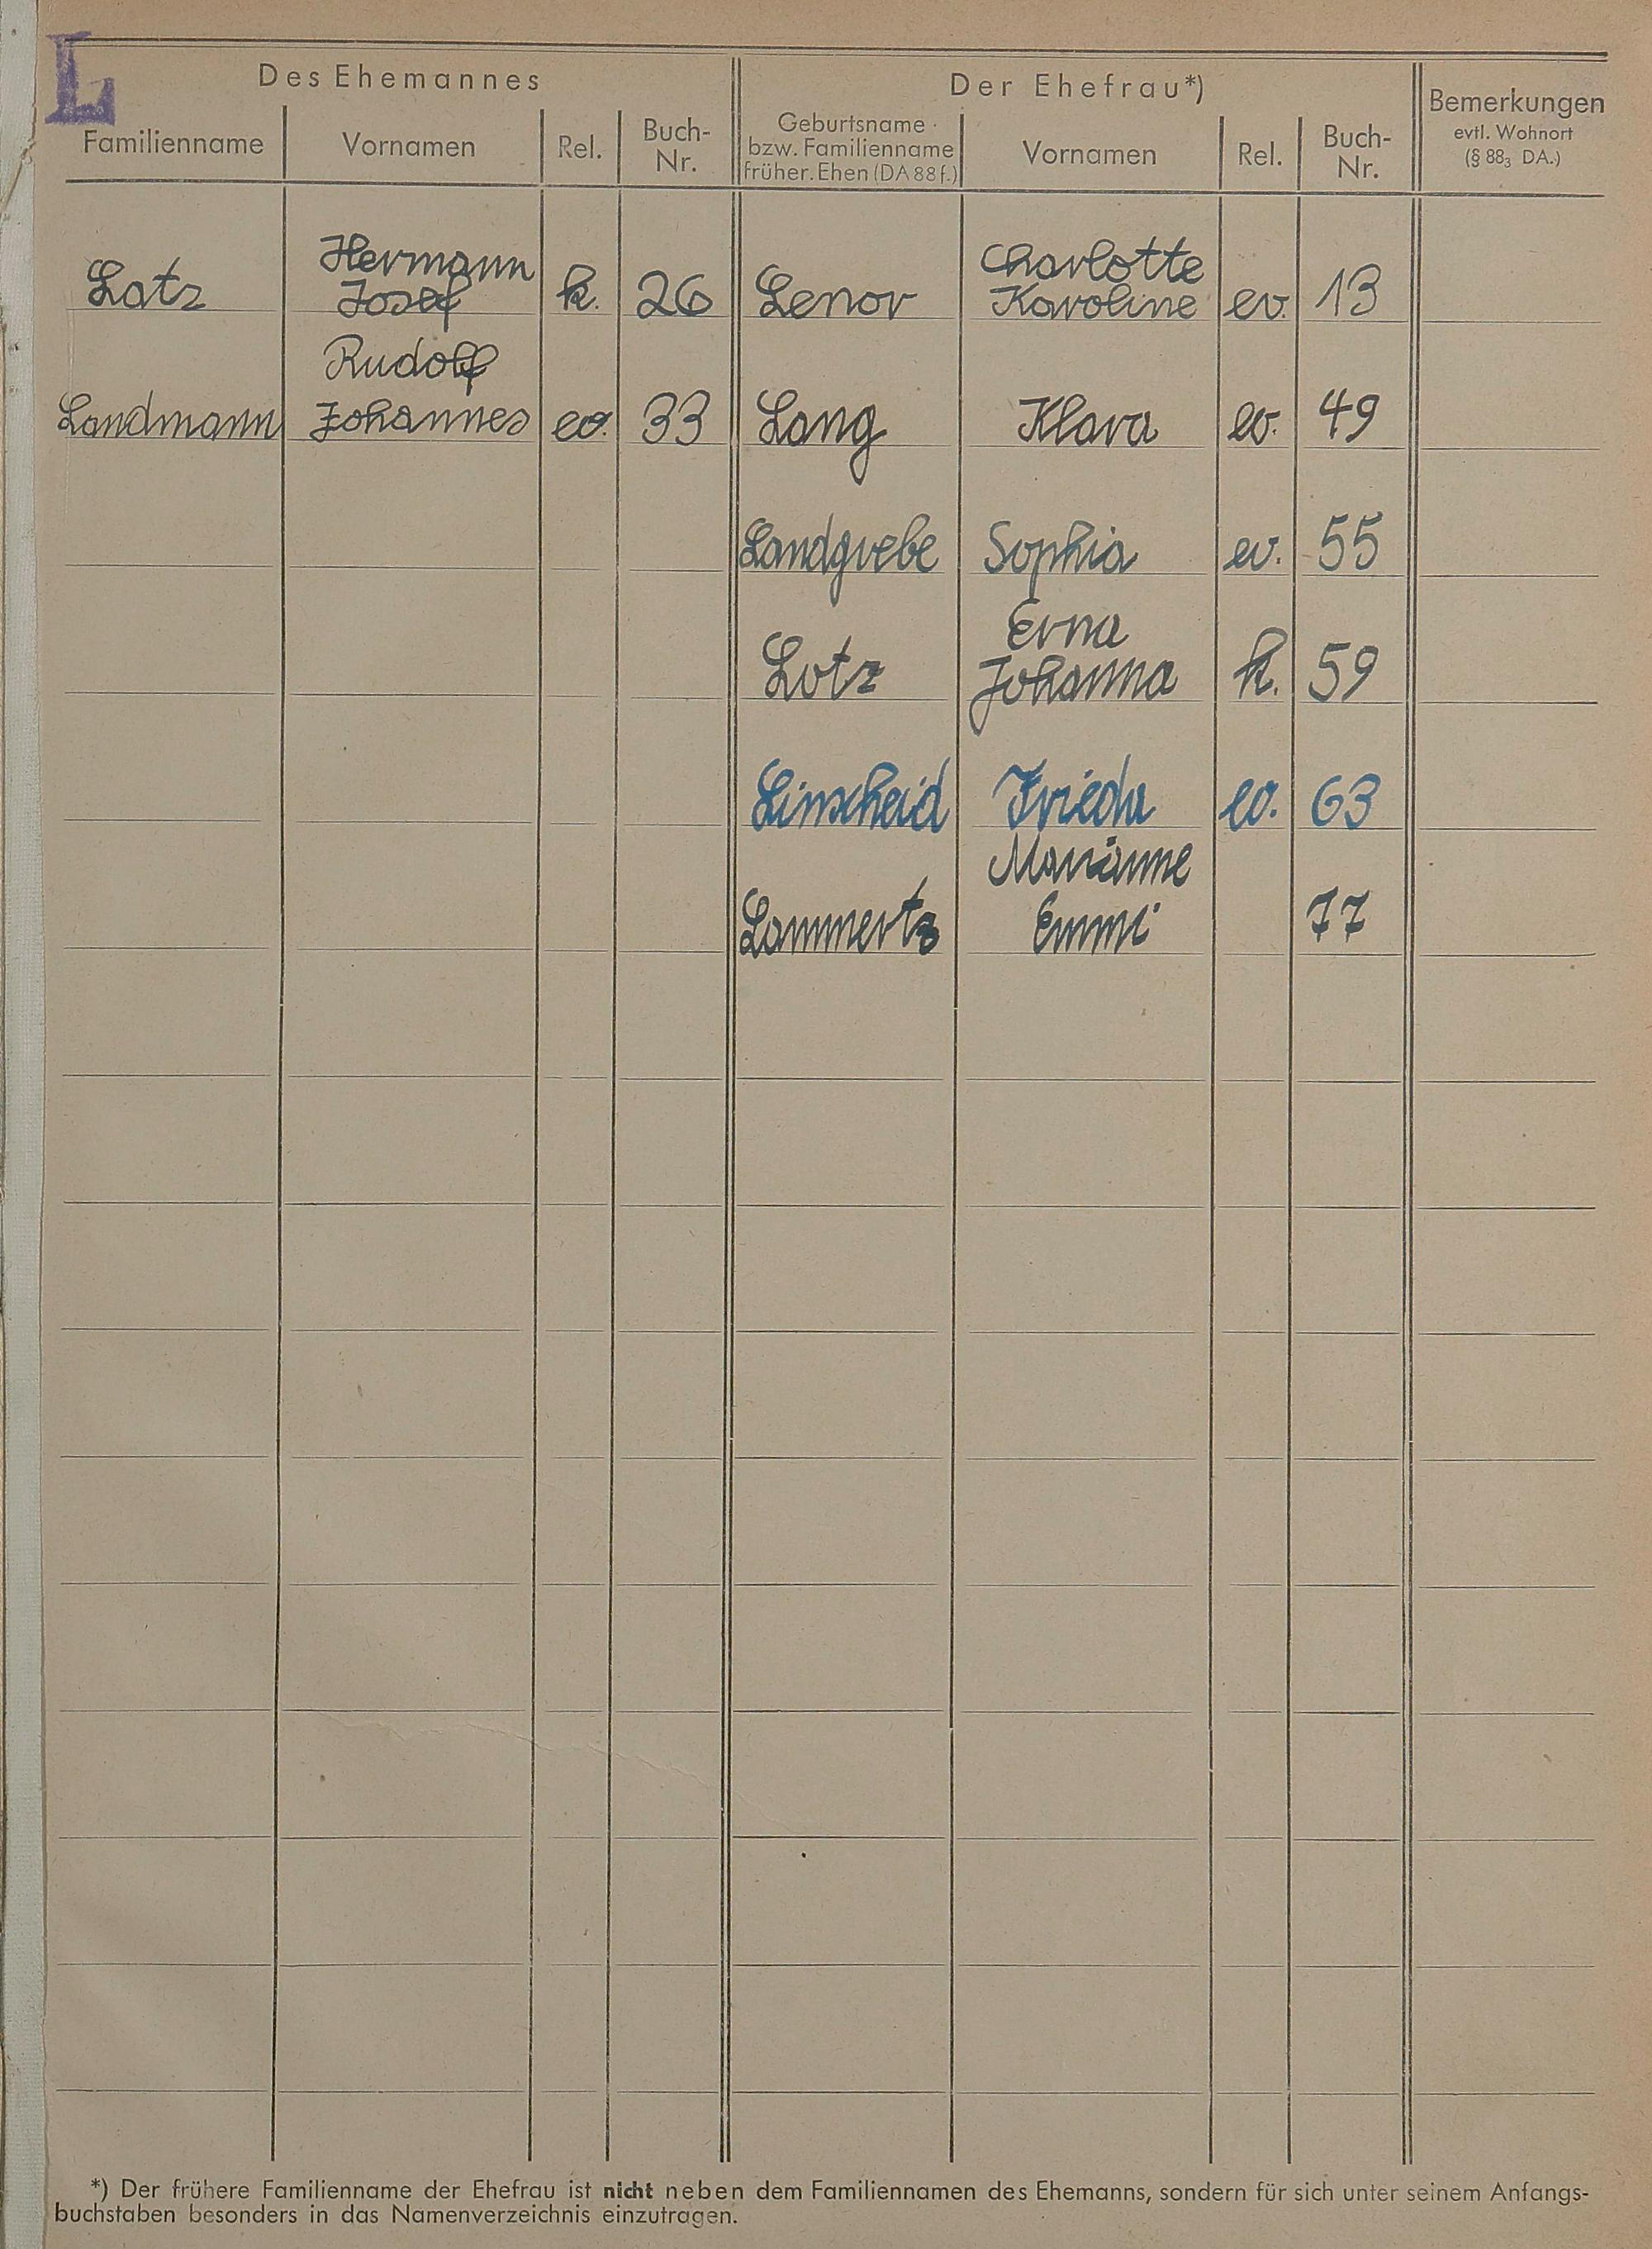 L
Des Ehemannes
Der Ehefrau*)
Bemerkungen
evtl. Wohnort
(§ 88₃ DA.)
Familienname
Vornamen
Rel.
Buch-
Nr.
Geburtsname
bzw. Familienname
früher. Ehen (DA 88 f.)
Vornamen
Rel.
Buch-
Nr.
Hermann Charlotte
Latz Josef k. 26 Lenor Karoline ev. 13
Rudolf
Landmann Johannes ev. 33 Lang Klara ev. 49
Landgrebe Sophia ev. 55
Erna
Lotz Johanna k. 59
Linscheid Frieda ev. 63
Marianne
Lammertz Emmi 77
*) Der frühere Familienname der Ehefrau ist nicht neben dem Familiennamen des Ehemanns, sondern für sich unter seinem Anfangs-
buchstaben besonders in das Namenverzeichnis einzutragen.